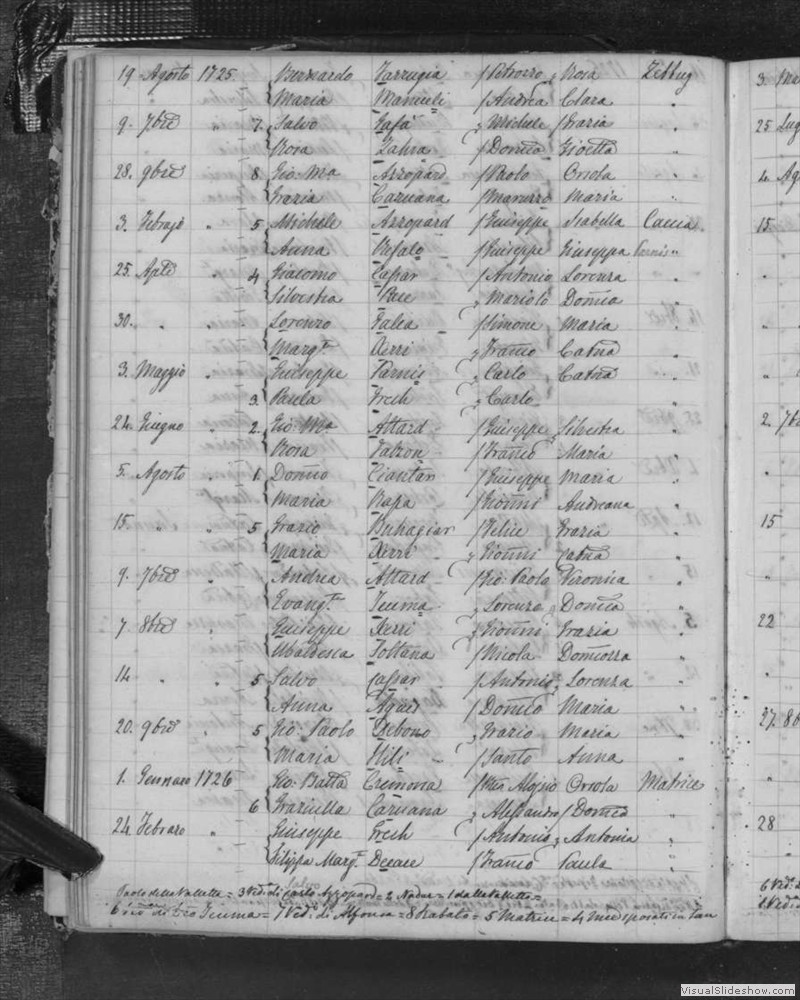 19. Agosto 1725 Bernardo Farrugia Petruzzo Rosa Zebbug
Maria Mamuli Andrea Clara "
9. 7bre " 7 Salvo Gafà Michele Grazia "
Rosa Zahra Domco Gioetta "
28. 9bre " 8 Gio: Ma Azzopard Paolo Orsola "
Grazia Caruana Maruzzo Maria "
3. Febrajo " 5 Michele Azzopard Giuseppe Isabella Caccia
Anna Refalo Giuseppe Giuseppa Farnis "
25. Aple " 4 Giacomo Caspar Antonio Lorenza "
Silvestra Mariolo Domca "
30. " " Lorenzo Falca Simone Maria "
Margta Xerri Franco Catna "
3. Maggio " Giuseppe Farnis Carlo Catna "
3 Paula Frech Carlo "
24. Giugno " 2 Gio: Ma Attard Giuseppe Silvestra "
Rosa Falzon Franco Maria "
5. Agosto " 1 Domco Ciantar Giuseppe Maria "
Maria Rapa Gionni Andreana "
15. " " 5 Grazio Buhagiar Felice Grazia "
Maria Xerri Gionni Catna "
9. 7bre " Andrea Attard Gio: Paolo Veronica "
Evangta Teuma Lorenzo Domca "
7. 8bre " Giuseppe Xerri Gionni Grazia "
Ubaldesca Foltana Nicola Domcozza "
14 " " 5 Salvo Caspar Antonio Lorenza "
Anna Agius Domco Maria "
20. 9bre " 5 Gio: Paolo Debono Grazio Maria "
Maria Hili Santo Anna "
1. Gennaro 1726 Gio: Batta Cremona Aloysio Orsola Matrice
6 Graziella Caruana Alessandro Domca "
24 Febraro " Giuseppe Frech Antonio Antonia "
Filippa Margta Decace Franco Paula "
Paolo della Valletta = 3 Ved: di Carlo Azzopard = 2 Nadur = 1 della Valletta =
6 Teuma = 7 Ved: di Alfonso = 8 Rabato = 5 Matrice = 4
3. Ma
25 Lug
4. Ag
15.
2. 7b
15
22
27. 8b
28
6 Ved:
VisualSlideshow.com